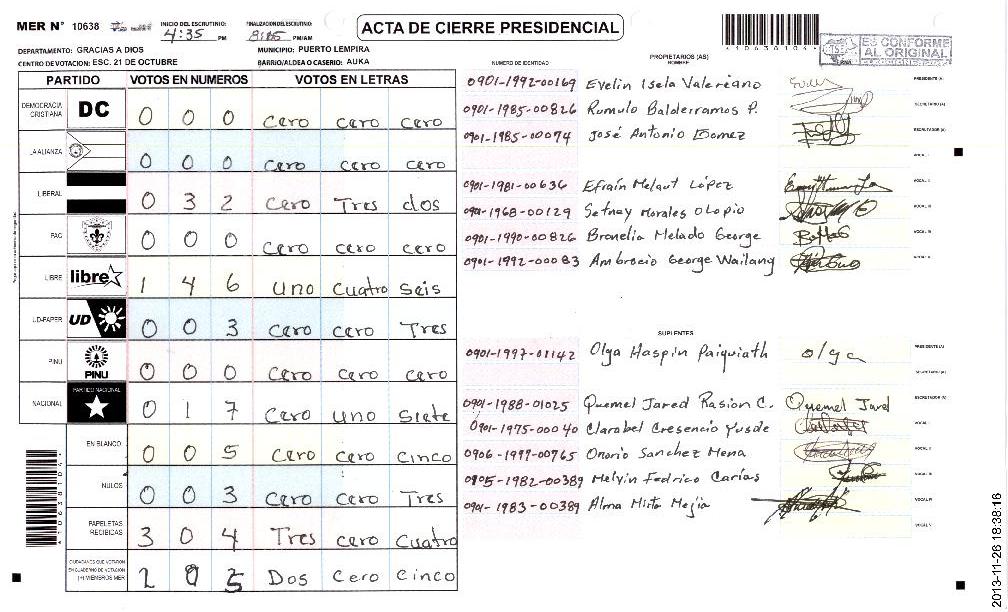 MER N° 10638
INICIO DEL ESCRUTINIO:
4:35 PM
FINALIZACION DEL ESCRUTINIO:
PM/AM
ACTA DE CIERRE PRESIDENCIAL
41063810 4
ES CONFORME
AL ORIGINAL
DEPARTAMENTO: GRACIAS A DIOS
MUNICIPIO: PUERTO LEMPIRA
CENTRO DE VOTACION: ESC. 21 DE OCTUBRE
BARRIO/ALDEA O CASERIO: AUKA
PARTIDO VOTOS EN NUMEROS VOTOS EN LETRAS
DEMOCRACIA CRISTIANA DC 0 0 0 cero cero cero
LA ALIANZA 0 0 0 cero cero cero
LIBERAL 0 3 2 cero Tres dos
PAC 0 0 0 cero cero cero
LIBRE libre 1 4 6 uno cuatro seis
UD-FAPER UD 0 0 3 cero cero Tres
PINU PINU 0 0 0 cero cero cero
NACIONAL PARTIDO NACIONAL 0 1 7 cero uno siete
EN BLANCO 0 0 5 cero cero cinco
NULOS 0 0 3 cero cero Tres
PAPELETAS RECIBIDAS 3 0 4 Tres cero cuatro
CIUDADANOS QUE VOTARON
EN CUADERNO DE VOTACION
(+) MIEMBROS MER 2 0 5 Dos Cero Cinco
NUMERO DE IDENTIDAD
PROPIETARIOS (AS)
NOMBRE
0901-1992-00169 Evelin Isela Valeriano PRESIDENTE (A)
0901-1985-00826 Rumulo Balderramos P. SECRETARIO (A)
0901-1985-00074 José Antonio Gomez ESCRUTADOR (A)
VOCAL I
0901-1981-00636 Efraín Melaut López VOCAL II
0901-1968-00129 Setnay Morales Olopio VOCAL III
0901-1990-00826 Bronelia Melado George VOCAL IV
0901-1992-00083 Ambrocio George Wailang VOCAL V
SUPLENTES
0901-1997-01142 Olga Haspin Paiquiath olga PRESIDENTE (A)
SECRETARIO (A)
0901-1988-01025 Quemel Jared Rasion C. Quemel Jared ESCRUTADOR (A)
0901-1975-00040 Clarabel Cresencio Yusde VOCAL I
0906-1997-00765 Onario Sanchez Mena VOCAL II
0905-1982-00389 Melvin Fedrico Carías VOCAL III
0901-1983-00389 Alma Misto Mejia VOCAL IV
VOCAL V
2013-11-26 18:38:16